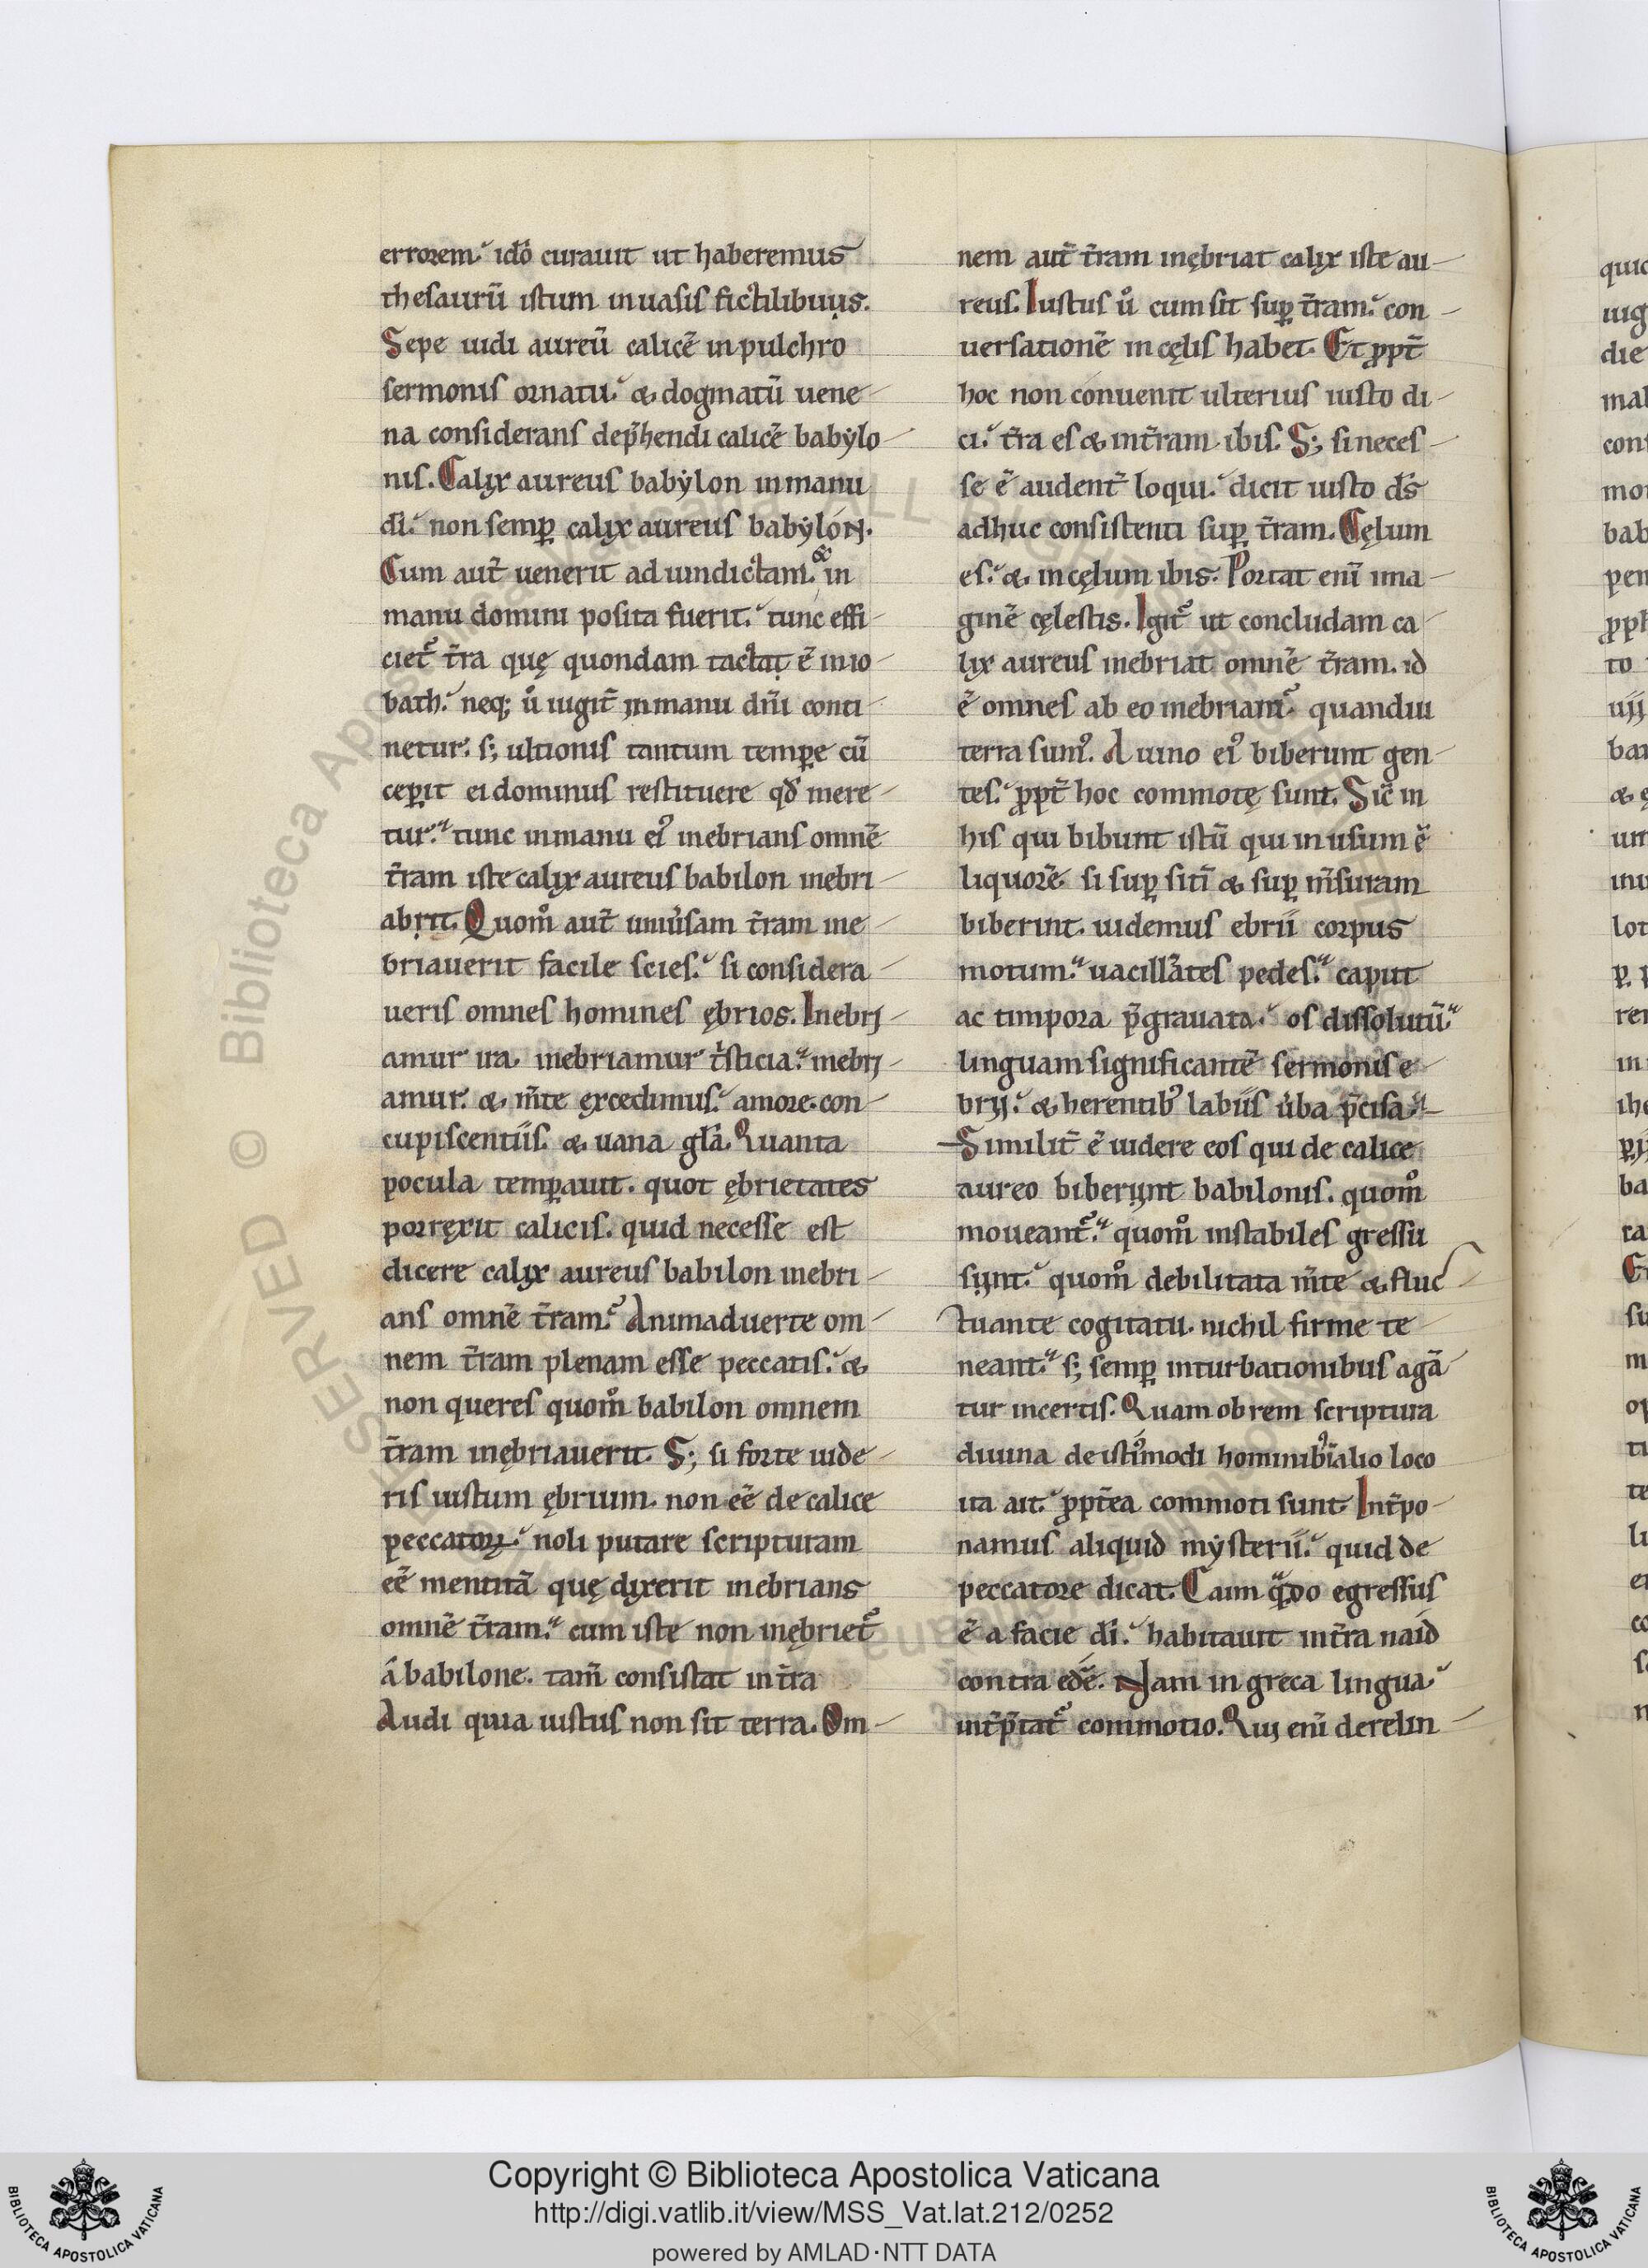 errorem. ido curauit ut haberemus
thesaurũ istum inuasis fictilibuus.
Sepe uidi aureũ calicẽ inpulchro
sermonis ornatu. & dogmatũ uene
na considerans dep̃hendi calicẽ babẏlo
nis. Calix aureus babẏlon inmanu
dĩ. non semꝑ calix aureus babẏlón.
Cum aut̃ uenerit ad uindictam. & in
manu domini posita fuerit. tunc effi
ciet᷑ t̃ra quę quondam tactat ẽ inio
bath. neq; ů iugit̃ inmanu dñi conti
netur. s; ultionis tantum temꝑe cũ
ceꝑit ei dominus restituere qđ mere
tur. tunc inmanu eiꝰ inebrians omnẽ
t̃ram iste calix aureus babilon inebri
abrit. Quom̊ aut̃ uniũsam t̃ram ine
briauerit facile scies. si considera
ueris omnes homines ębrios. Inebrj
amur ira. inebriamur t̃sticia. inebrj
amur. & m̃te ęxcedimus. amore. con
cupiscentiis. & uana glã. Quanta
pocula temꝑauit. quot ębrietates
porręxit calicis. quid necesse est
dicere calix aureus babilon inebri
ans omnẽ t̃ram. Animaduerte om
nem t̃ram plenam esse peccatis. &
non queres quom̊ babilon omnem
t̃ram inębriauerit. S; si forte uide
ris iustum ębrium. non eẽ de calice
peccatorꝝ. noli putare scripturam
eẽ mentitã quę dixerit inebrians
omnẽ t̃ram. cum iste non inębriet᷑
á babilone. tam̃ consistat int̃ra
Audi quia iustus non sit terra. Om
nem aut̃ t̃ram inębriat calix iste au
reus. Iustus ů cum sit suꝑ t̃ram. con
uersationẽ incęlis habet. Et ꝓpt̃
hoc non conuenit ulterius iusto di
ci. t̃ra es & int̃ram ibis. S; si neces
se ẽ audent̃ loqui. dicit iusto dš
adhuc consistenti suꝑ t̃ram. Cęlum
es. & incęlum ibis. Portat enĩ ima
ginẽ cęlestis. Igit᷑ ut concludam ca
lix aureus inebriat omnẽ t̃ram. id
ẽ omnes ab eo inebriam᷑ quandiu
terra sumꝰ. A uino eiꝰ biberunt gen
tes. ꝓpt̃ hoc commotę sunt. Sic̃ in
his qui bibunt istũ qui inusum ẽ
liquorẽ. si suꝑ sitĩ & suꝑ m̃suram
biberint. uidemus ebrii corpus
motum. uacillãtes pedes. caput
ac timpora p̃grauata. os dissolutũ
linguam significantẽ sermonis e
brij. & herentibꝰ labiis ůba p̃cisa
Similit̃ ẽ uidere eos qui de calice
aureo biberunt babilonis. quom̊
moueant᷑. quom̊ instabiles gressu
sunt. quom̊ debilitata m̃te & fluc
tuante cogitatu. nichil firme te
neant. s; semꝑ inturbationibus agã
tur incertis. Quam obrem scriptura
diuina de istiꝰmodi hominibꝰ ĩalio loco
ita ait. ꝓpt̃ea commoti sunt. Int̃po
namus aliquid mẏsterii. quid de
peccatore dicat. Cain qͣ̃do egressus
ẽ a facie dĩ. habitauit int̃ra naid
contra edẽ. Nam in greca lingua
int̃p̃tat᷑ commotio. Qui enĩ derelin
Copyright © Biblioteca Apostolica Vaticana
http://digi.vatlib.it/view/MSS_Vat.lat.212/0252
powered by AMLAD·NTT DATA
BIBLIOTECA APOSTOLICA VATICANA
BIBLIOTECA APOSTOLICA VATICANA